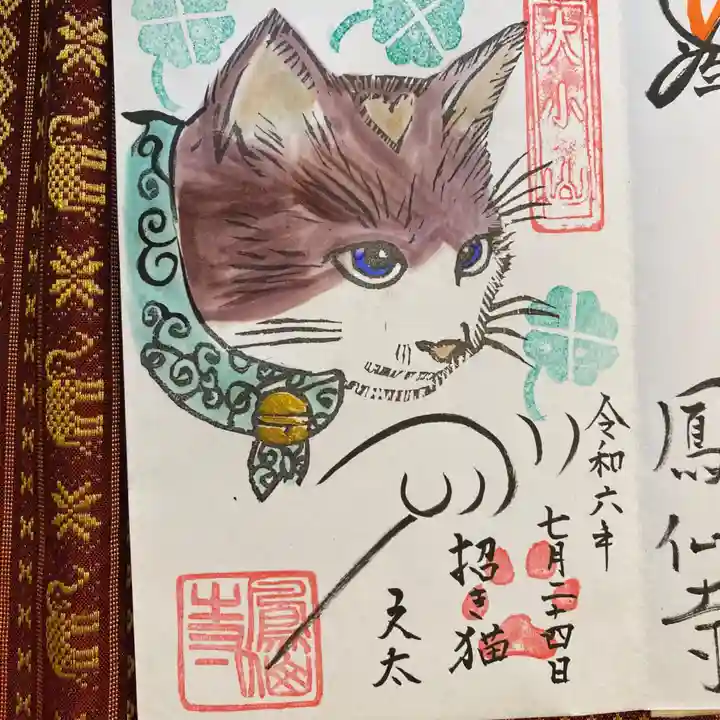 大小山
鳳仙寺
令和六年
七月二十四日
招き猫
天太
鳳仙寺